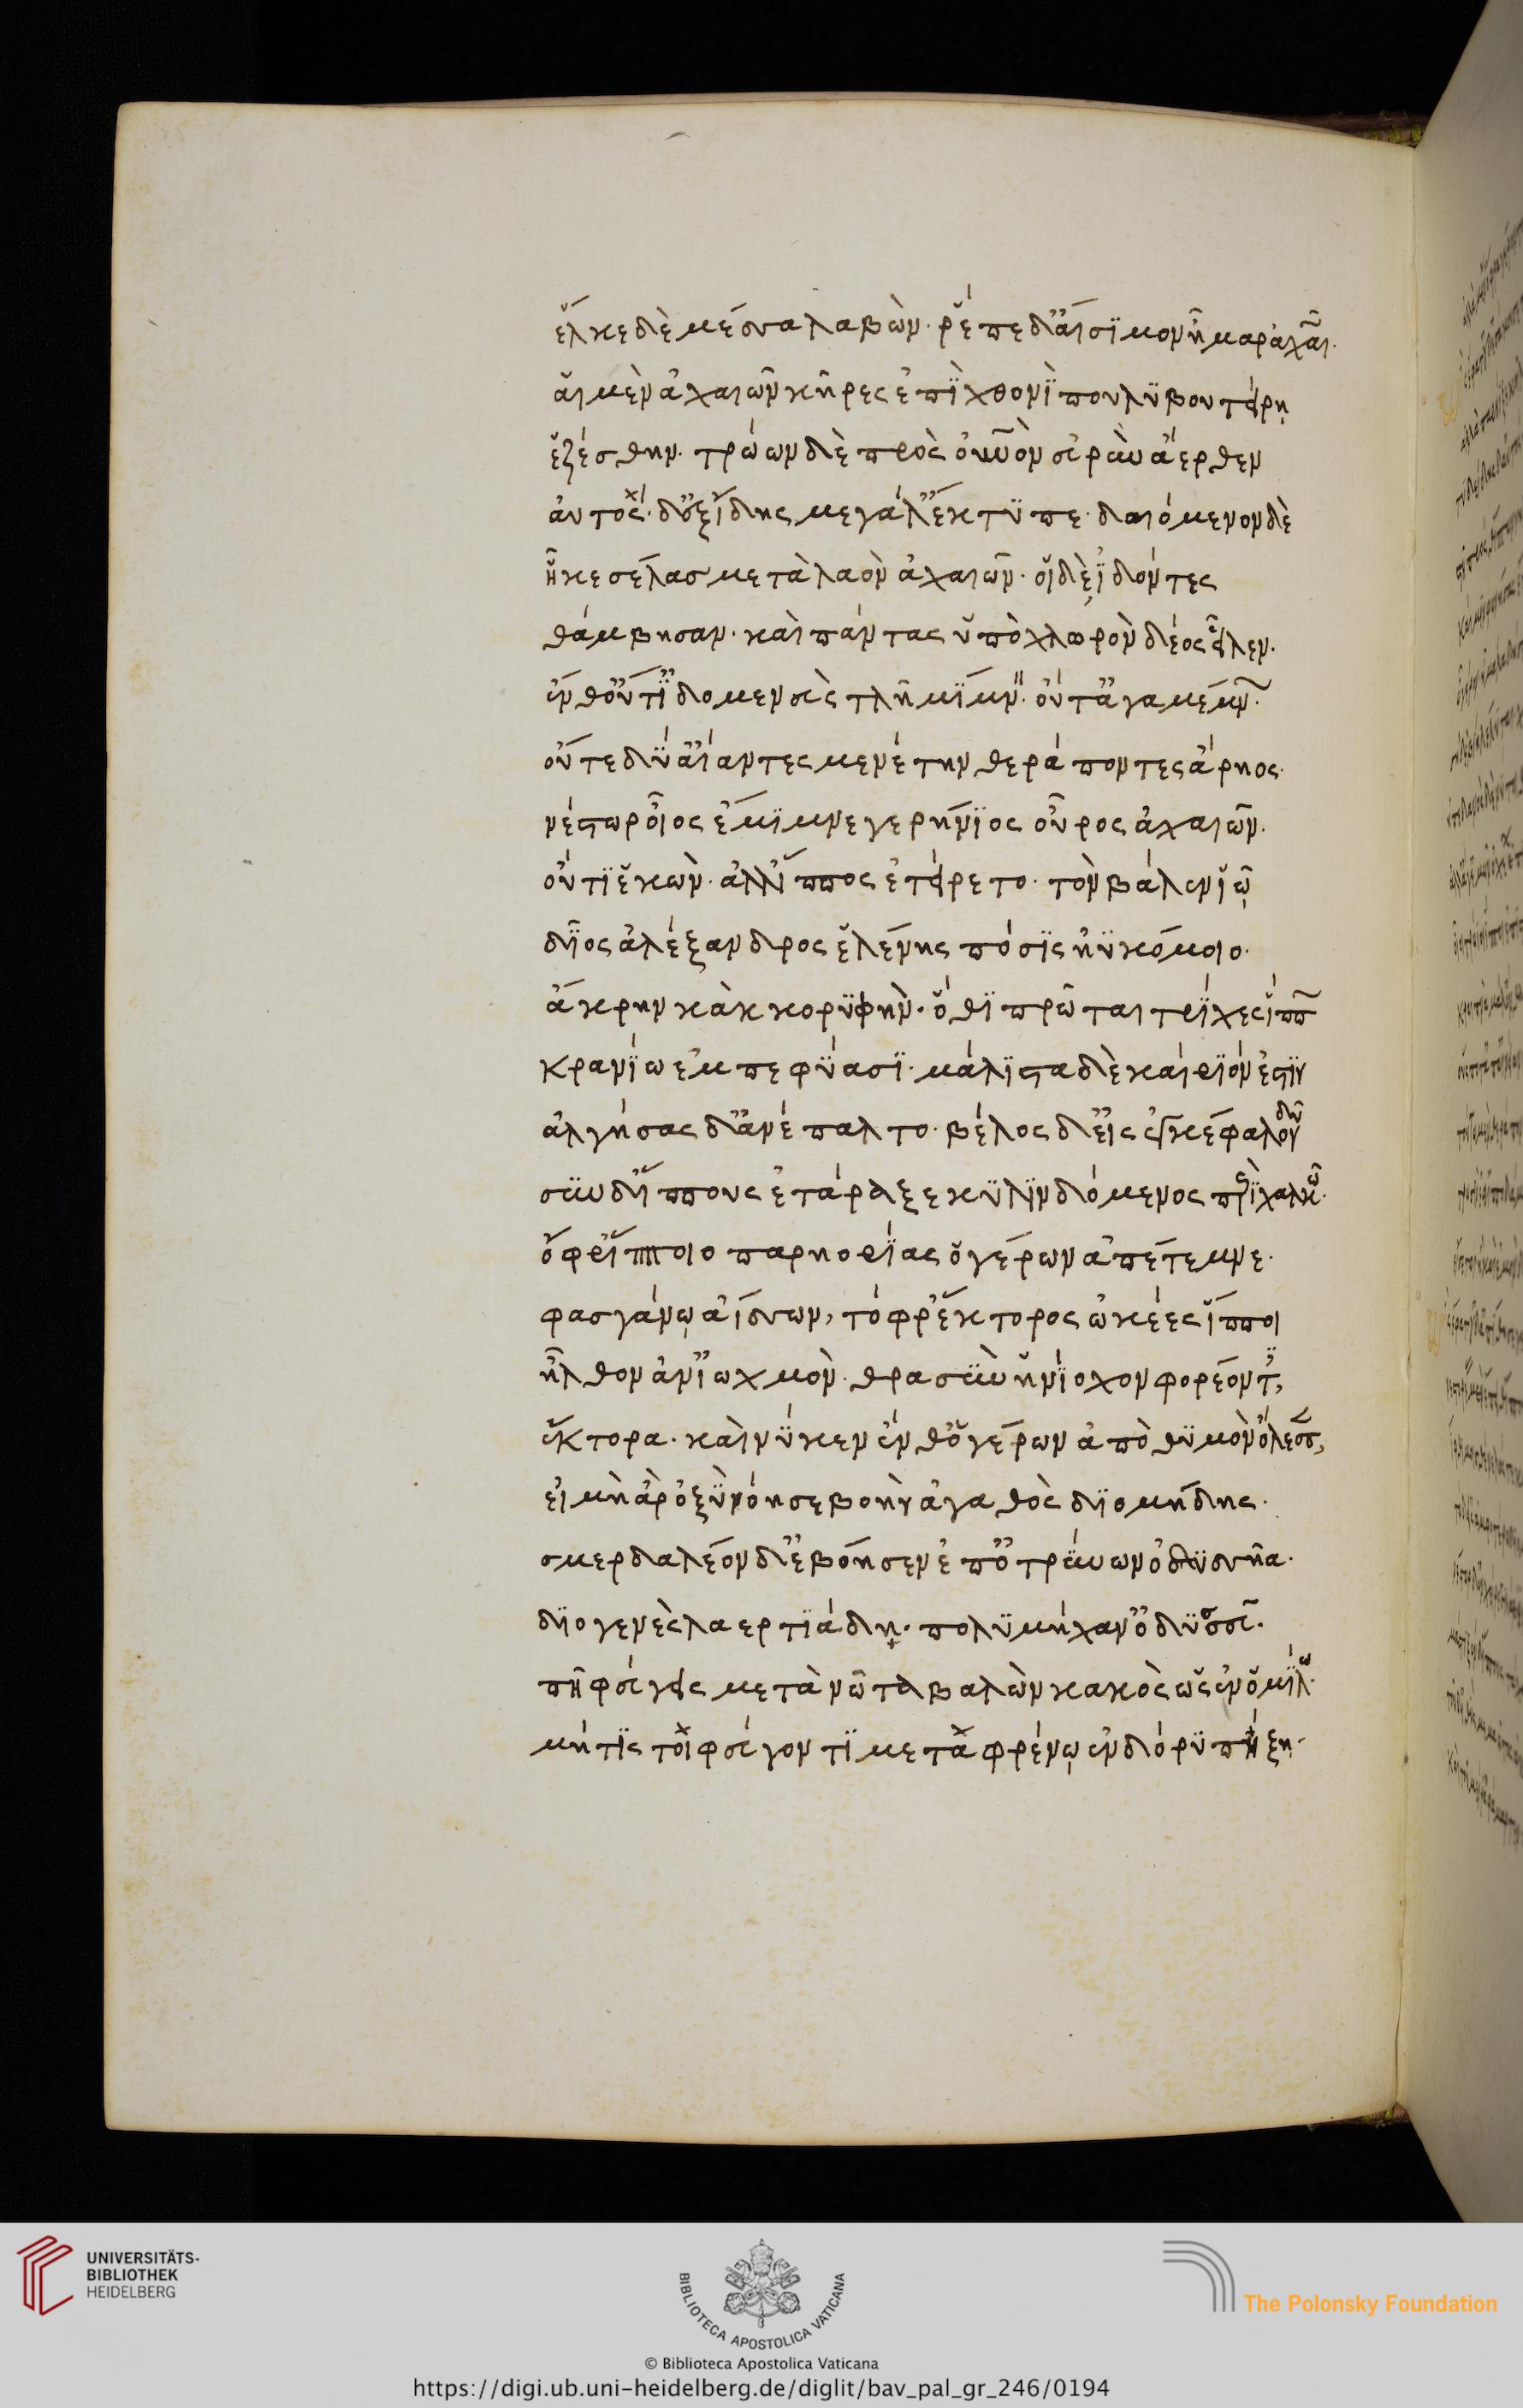 ἕλκε δὲ μέσσα λαβών· ῥέπε δ' αἴσϊμον ἦμαρ ἀχαιῶν·
αἳ μὲν ἀχαιῶν κῆρες ἐπῒ χθονῒ πουλϋβοτείρη
ἑζέσθην· τρώων δὲ πρὸς οὐρανὸν εὐρὺν ἄερθεν
αὐτὸς δ' ἐξ ἴδης μεγάλ' ἔκτϋπε· δαιόμενον δὲ
ἧκε σέλας μετὰ λαὸν ἀχαιῶν· οἳ δὲ ἰδόντες
θάμβησαν· καὶ πάντας ὑπὸ χλωρὸν δέος εἷλεν·
ἔνθ' οὔτ' ἰδομενεὺς τλῆ μίμνειν· οὔτ' ἀγαμέμνων·
οὔτε δύ' αἴαντες μενέτην θεράποντες ἄρηος·
νέστωρ οἶος ἔμϊμνε γερήνϊος οὖρος ἀχαιῶν·
οὔτϊ ἑκών· ἀλλ' ἵππος ἐτείρετο· τὸν βάλεν ἰῷ
δῖος ἀλέξανδρος ἑλένης πόσϊς ἠϋκόμοιο·
ἄκρην κὰκ κορϋφήν· ὅθϊ πρῶται τρίχες ἵππων
κρανίω ἐμπεφύασϊ· μάλϊστα δὲ καίριόν ἐστϊν
ἀλγήσας δ' ἀνέπαλτο· βέλος δ' εἰς ἐγκέφαλον δῦ
σὺν δ' ἵππους ἐτάραξε κυλινδόμενος περῒ χαλκῶ·
ὄφρ' ἵπποιο παρηορίας ὁ γέρων ἀπέτεμνε·
φασγάνῳ ἀΐσσων, τόφρ' ἕκτορος ὠκέες ἵπποι
ἦλθον ἀν' ἰωχμόν· θρασὺν ἡνίοχον φορέοντες,
ἕκτορα· καί νύ κεν ἔνθ' ὁ γέρων ἀπὸ θυμὸν ὄλεσσεν,
εἰ μὴ ἄρ' ὀξὺ νόησε βοὴν ἀγαθὸς δϊομήδης·
σμερδαλέον δ' ἐβόησεν ἐποτρύνων ὀδϋσσῆα·
δϊογενὲς λαερτϊάδη· πολϋμήχαν' ὀδϋσσεῦ·
πῆ φεύγεις μετὰ νῶτα βαλὼν κακὸς ὣς ἐν ὁμίλω·
μήτϊς τοι φεύγοντϊ μεταφρένῳ ἐν δόρϋ πήξη·
UNIVERSITÄTS-
BIBLIOTHEK
HEIDELBERG
BIBLIOTECA APOSTOLICA VATICANA
The Polonsky Foundation
© Biblioteca Apostolica Vaticana
https://digi.ub.uni-heidelberg.de/diglit/bav_pal_gr_246/0194